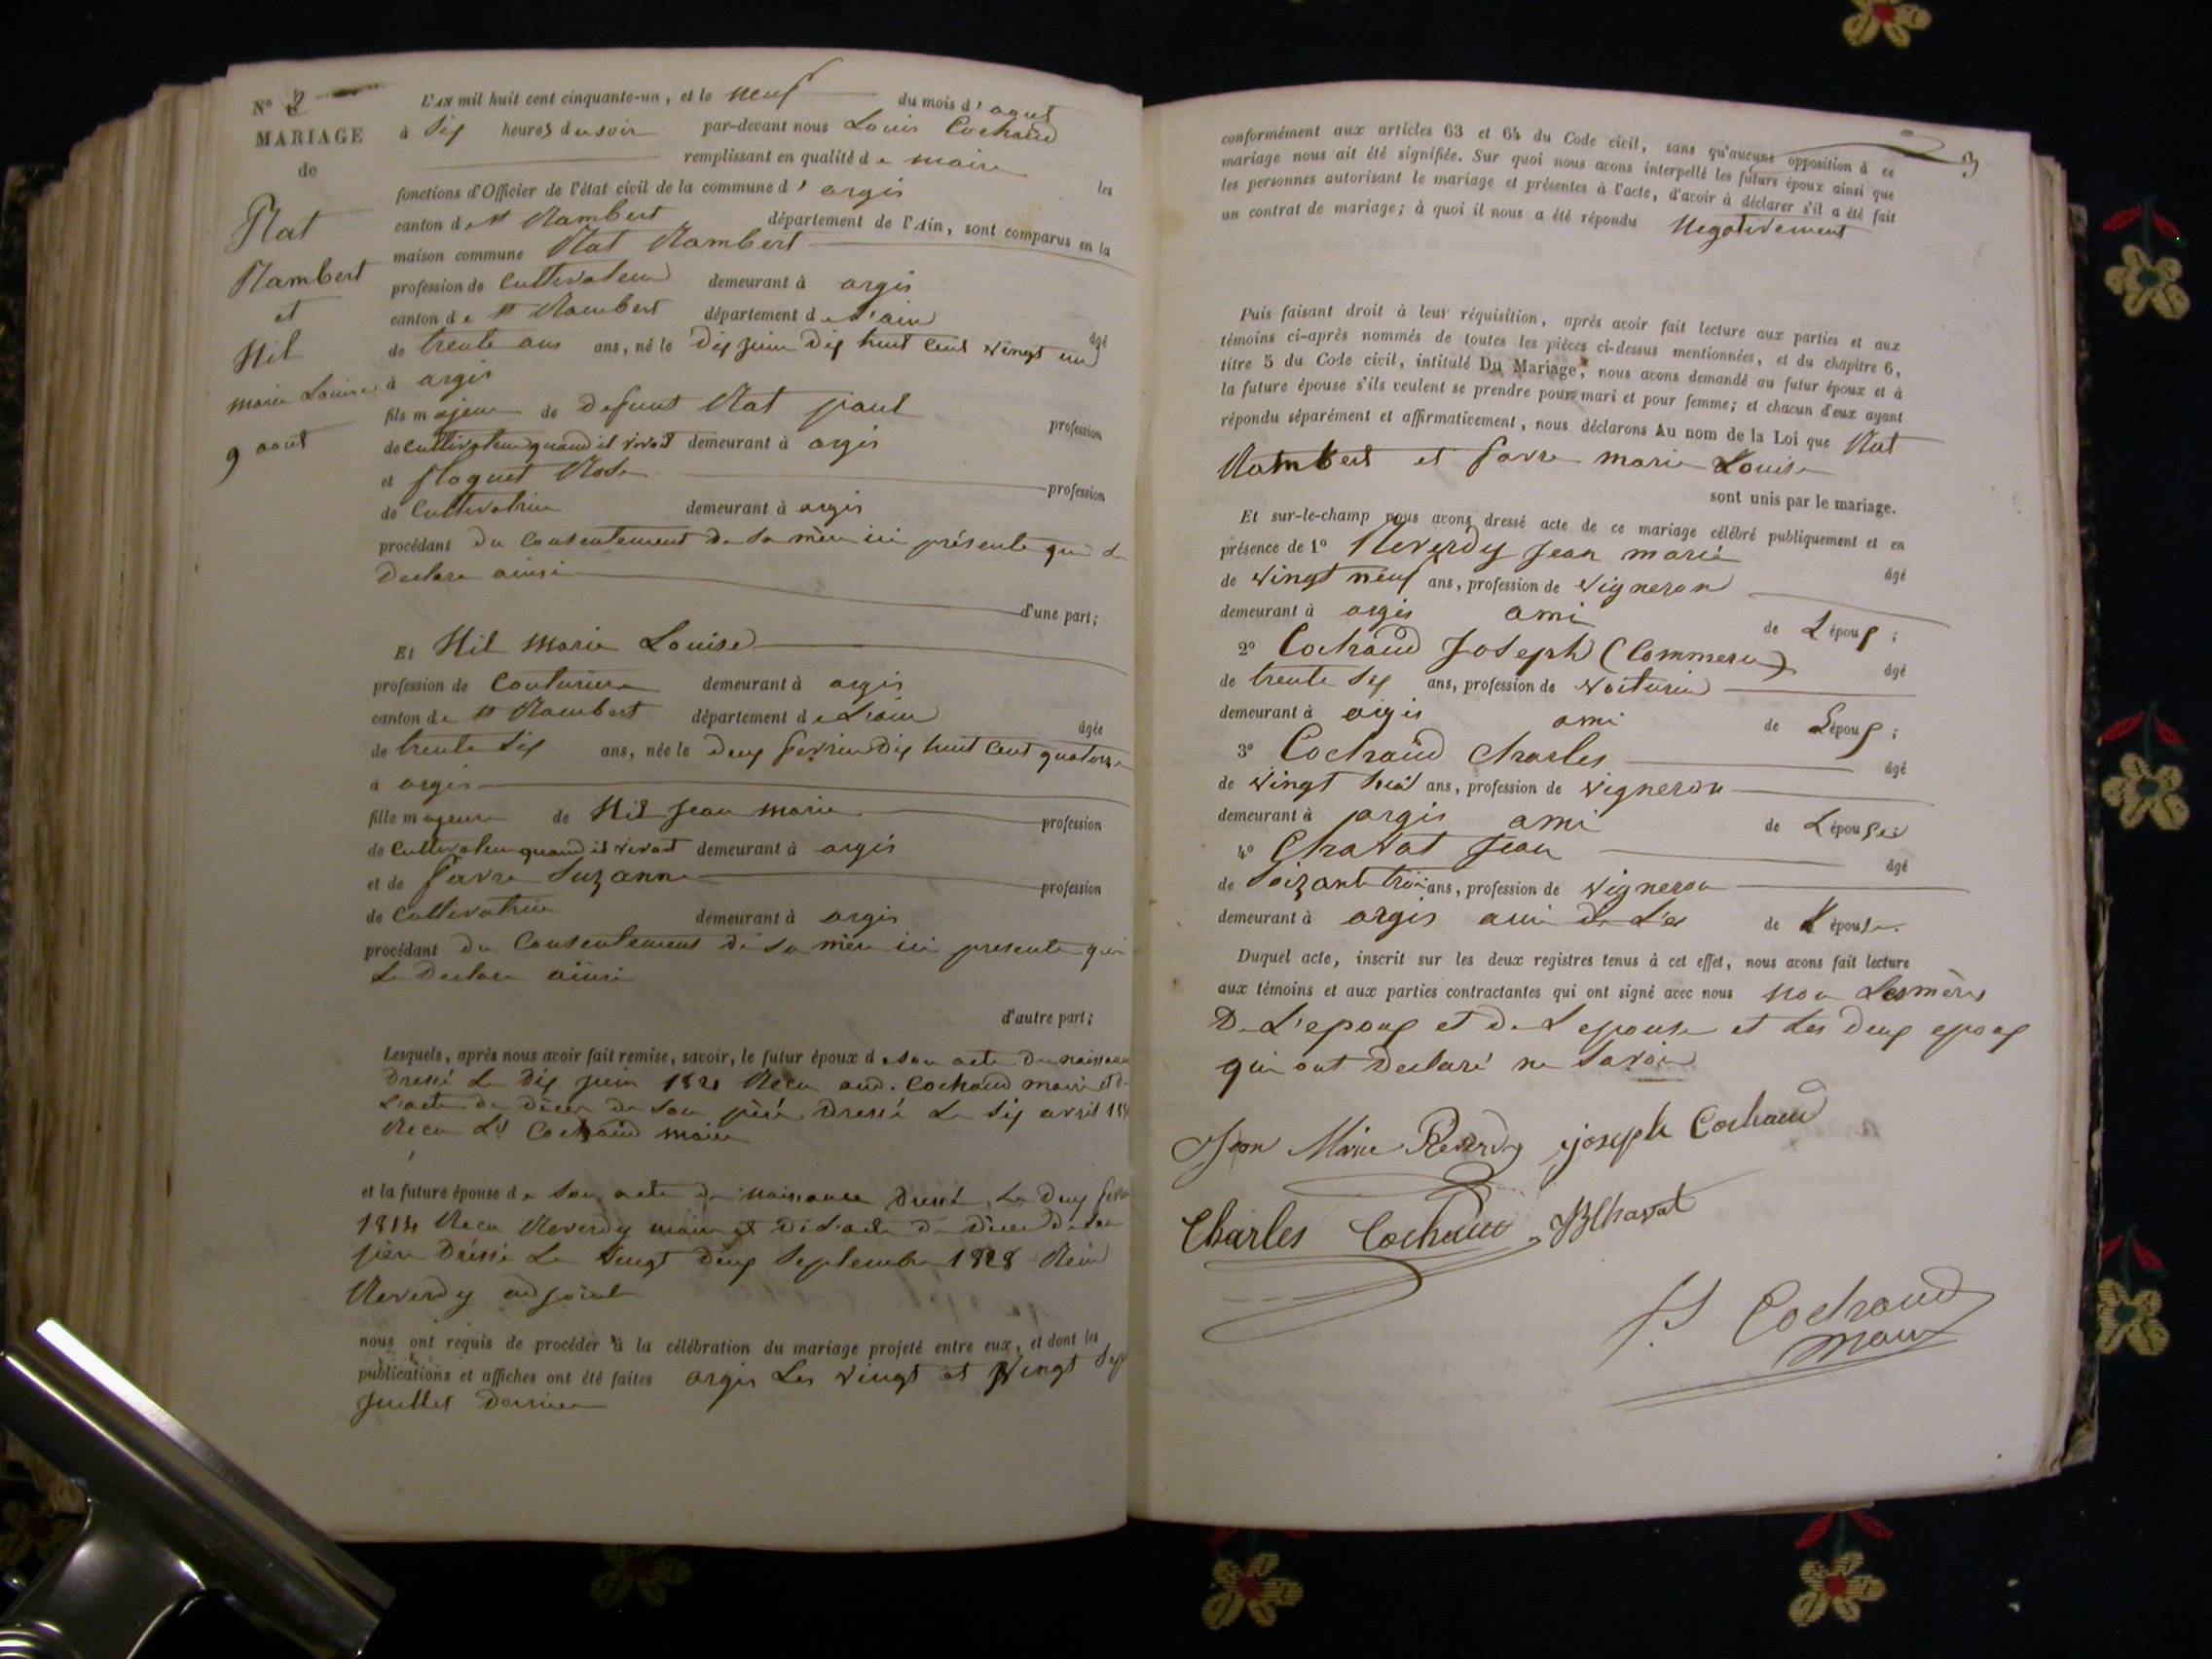 N° 2
MARIAGE
de
Nat
Rambert
et
Hil
marie Louise
9 aout
L'AN mil huit cent cinquante-un, et le neuf du mois d'aout
à six heures du soir par-devant nous Louis Cochaud
remplissant en qualité de maire les
fonctions d'Officier de l'état civil de la commune d'argis
canton de st Rambert département de l'Ain, sont comparus en la
maison commune Nat Rambert
profession de Cultivateur demeurant à argis
canton de st Rambert département de l'ain âgé
de trente ans ans, né le Dix juin Dix huit cent vingt un
à argis
fils majeur de Defunt Nat paul profession
de cultivateur quand il vivait demeurant à argis
et floquet Rose profession
de Cultivatrice demeurant à argis
procédant du Consentement de sa mère ici présente qui le
Declare ainsi
d'une part;
Et Hil Marie Louise
profession de Couturiere demeurant à argis
canton de st Rambert département de L'ain âgée
de trente sept ans, née le Deux fevrier Dix huit Cent quatorze
à argis
fille majeure de Hil Jean Marie profession
de Cultivateur quand il vivait demeurant à argis
et de favre Suzanne profession
de Cultivatrice demeurant à argis
procédant du Consentement de sa mère ici presente qui
Le Declare ainsi
d'autre part;
Lesquels, après nous avoir fait remise, savoir, le futur époux de son acte de naissance
Dressé Le Dix juin 1821 Recu and. Cochaud maire et de
L'acte de Décès de son père Dressé Le six avril
Recu Ls Cochaud maire
et la future épouse de son acte de naissance Dressé Le Deux fevrier
1814 Recu Reverdy maire et de L'acte de Décès de son
père Dréssé Le vingt Deux Septembre 1828 Reçu
Reverdy adjoint
nous ont requis de procéder à la célébration du mariage projeté entre eux, et dont les
publications et affiches ont été faites argis Les vingt et vingt sept
Juillet Dernier
3
conformément aux articles 63 et 64 du Code civil, sans qu'aucune opposition à ce
mariage nous ait été signifiée. Sur quoi nous avons interpellé les futurs époux ainsi que
les personnes autorisant le mariage et présentes à l'acte, d'avoir à déclarer s'il a été fait
un contrat de mariage; à quoi il nous a été répondu Negativement
Puis faisant droit à leur réquisition, après avoir fait lecture aux parties et aux
témoins ci-après nommés de toutes les pièces ci-dessus mentionnées, et du chapitre 6,
titre 5 du Code civil, intitulé Du Mariage, nous avons demandé au futur époux et à
la future épouse s'ils veulent se prendre pour mari et pour femme; et chacun d'eux ayant
répondu séparément et affirmativement, nous déclarons Au nom de la Loi que Nat
Rambert et favre marie Louise
sont unis par le mariage.
Et sur-le-champ nous avons dressé acte de ce mariage célébré publiquement et en
présence de 1° Reverdy Jean marie âgé
de vingt neuf ans, profession de vigneron
demeurant à argis ami de L'époux;
2° Cochaud Joseph (Commerce) âgé
de trente sept ans, profession de voiturier
demeurant à argis ami de L'époux;
3° Cochaud Charles âgé
de vingt huit ans, profession de vigneron
demeurant à argis ami de L'épouse;
4° Chavat Jean âgé
de soixante trois ans, profession de vigneron
demeurant à argis ami de L'e de L'épouse.
Duquel acte, inscrit sur les deux registres tenus à cet effet, nous avons fait lecture
aux témoins et aux parties contractantes qui ont signé avec nous non Les mères
De L'epoux et de L'epouse et Les deux epoux
qui ont Declaré ne Savoir
Jean Marie Reverdy joseph Cochaud
Charles Cochaud Chavat
Cochaud
maire